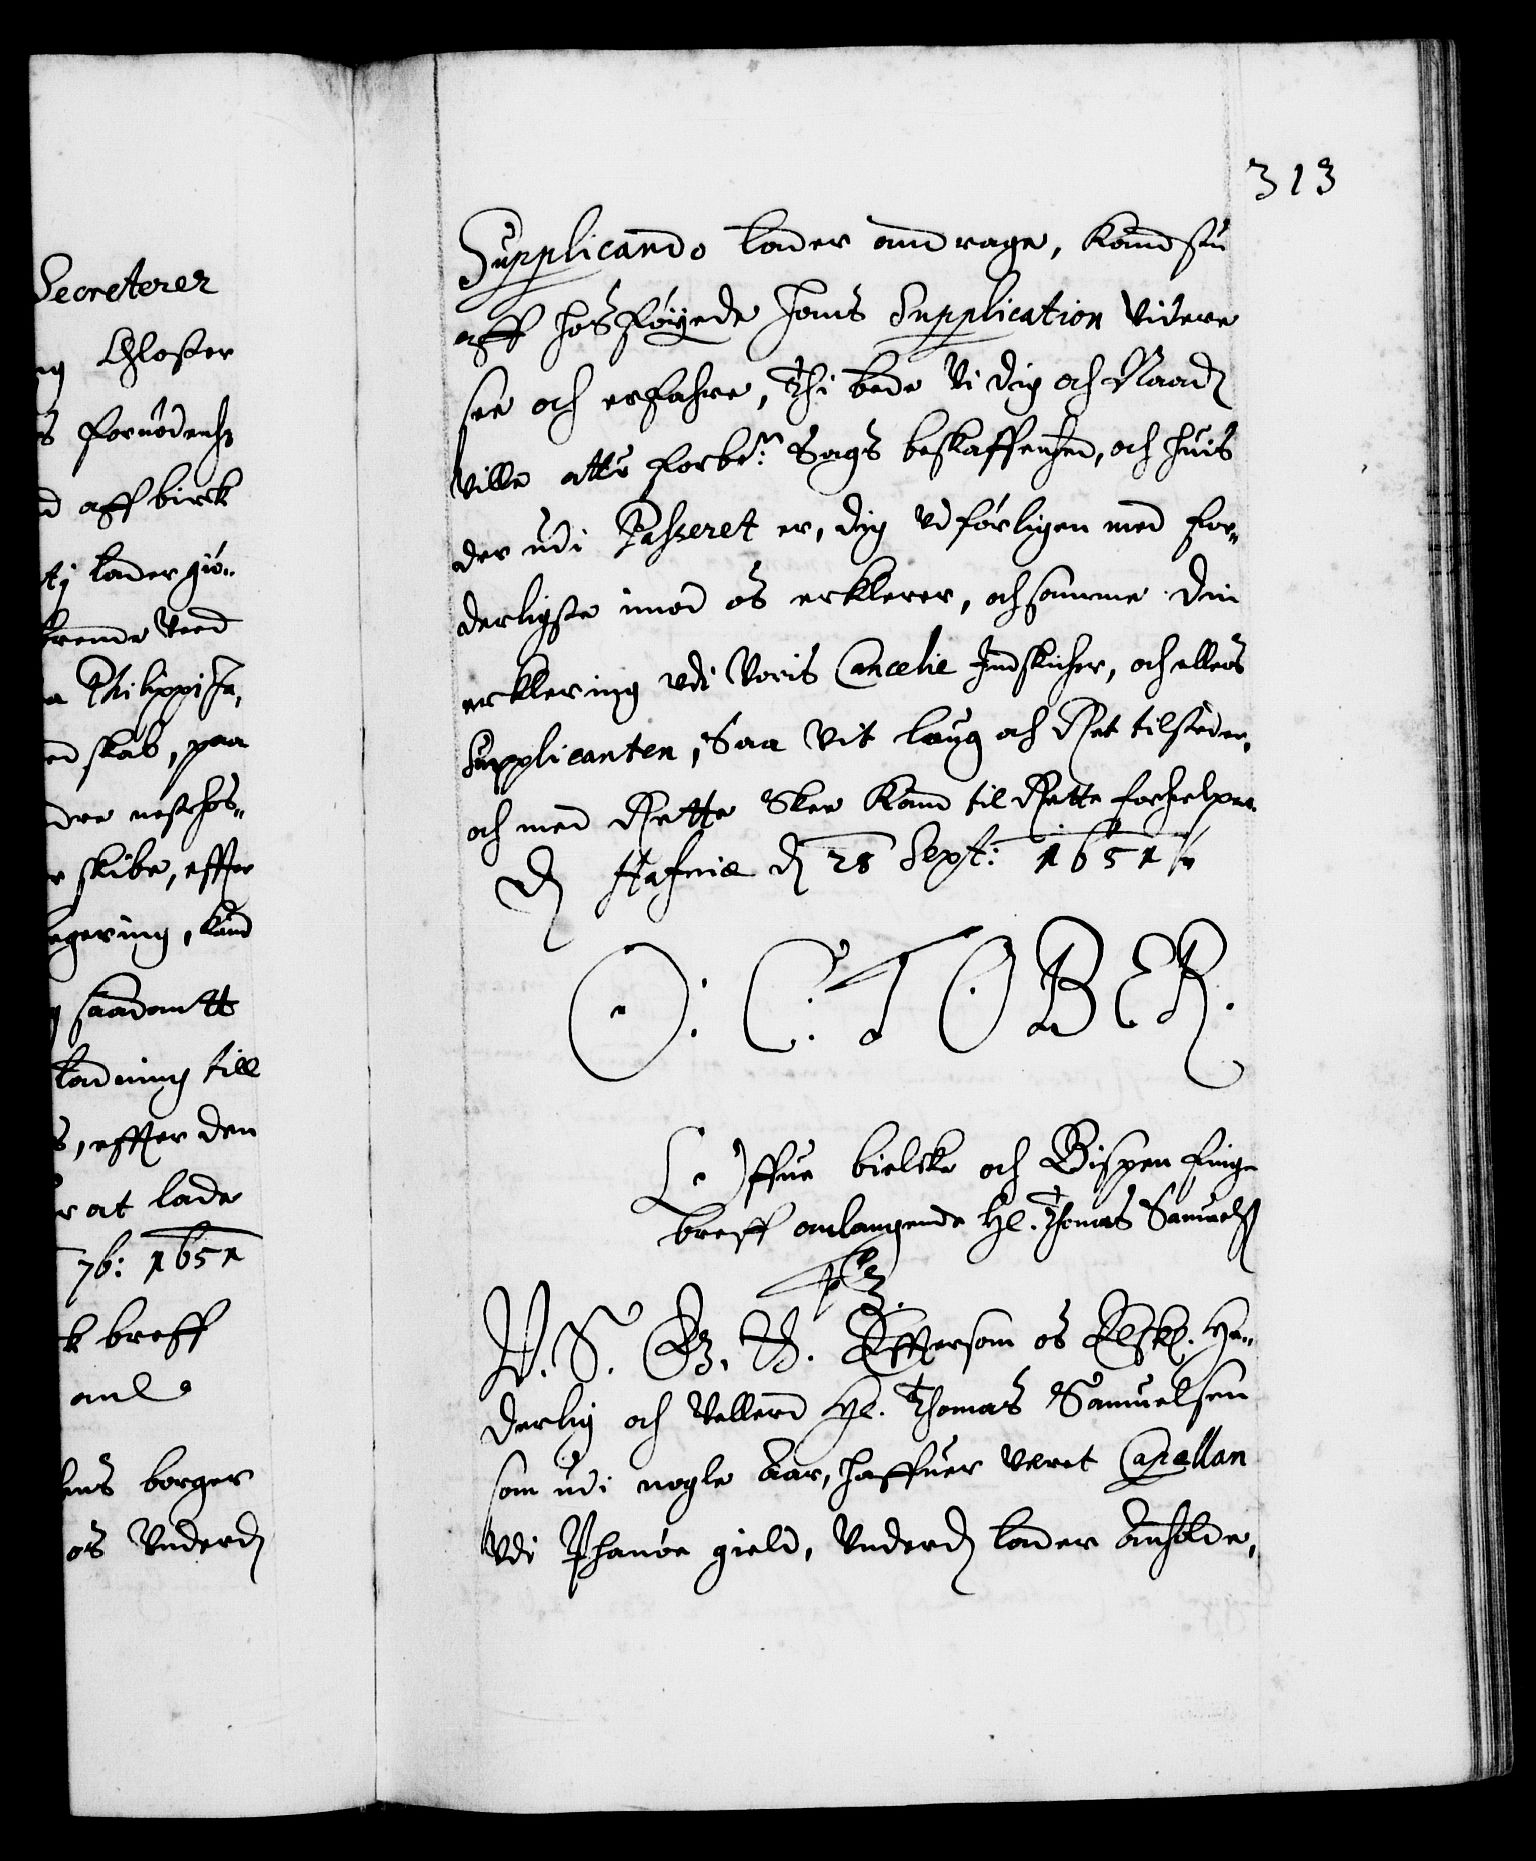 313
Secreterer
Closter
fornødenhed
aff birck
lader giø-
Philippi
skab, paa
skibe, effter
saadantt
ladning till
, effter den
at lade
7b: 1651
breff
anl
borger
os Underd
Supplicando lader andrage, Kand du
aff hosføyede hans Supplication videre
see och erfahre, Thi bede Vi dig och Naad
ville att forbe: Sags beskaffenhed, och huis
der udi Passeret er, dig udførligen med for-
derligste imod os erklerer, och samme din
erklering udi Voris Cancelie Indskicher, och ellers
Supplicanten, Saa vit laug och Ret tilsteder,
och med Rette Skee Kand til Rette forhielper.
D Hafniæ d 28 Sept: 1651
O: C: TOBER.
Offue bielcke och Bispen finge
breff anlangende Hr. Thomas Samuels
V. S. G. T. Effter som os Elsk. He-
derlig och Vellerd Hr. Thomas Samuelsen
som udi nogle Aar, haffuer veret Capellan
Udi Phanøe gield, Underd lader Anholde,